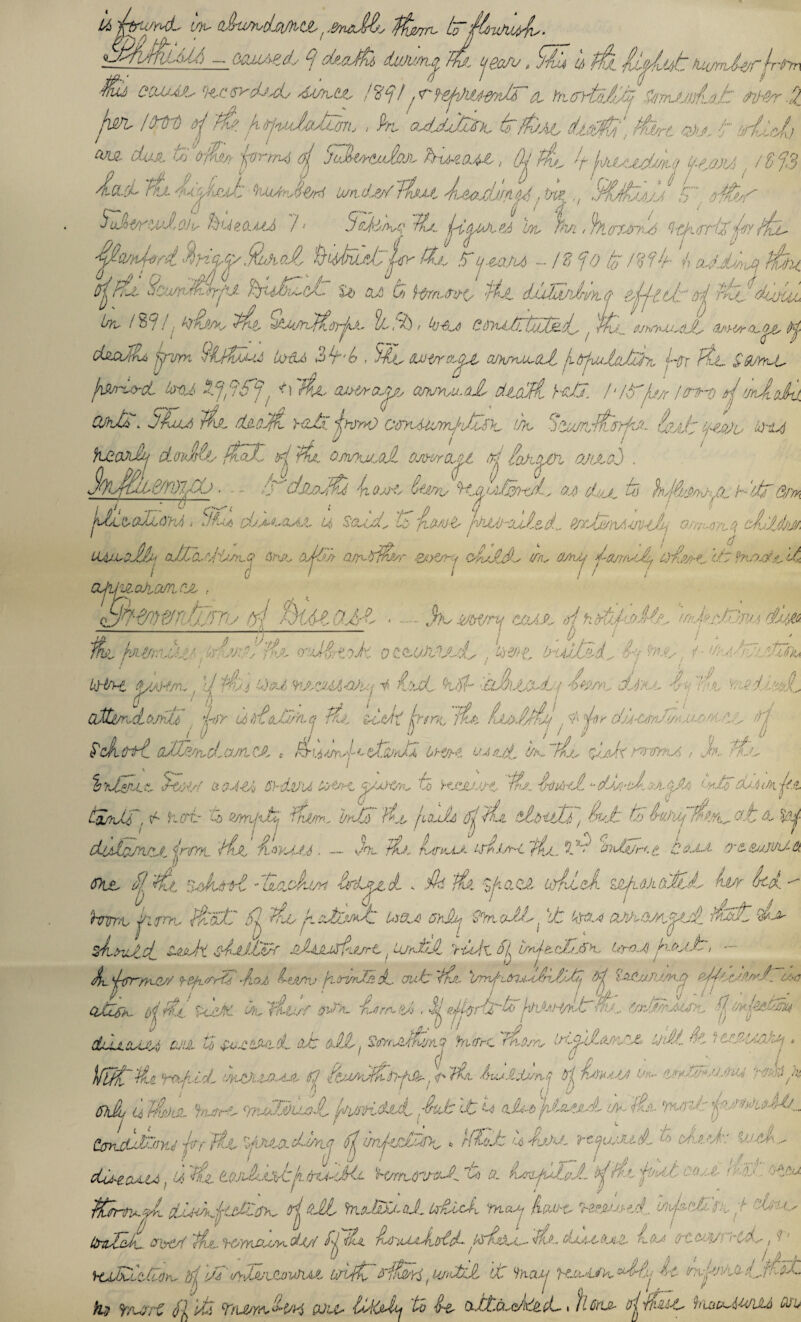 is found in abundance, small them to flourish.
Phthisis — caused 9 deaths during the year. This is the highest number from
this cause recorded since 1891, & represents a mortality somewhat over 2
per 1000 of the population. In addition to these deaths, there are 5 which
are due to other forms of Tubercular Disease. Of the 4 preceding years, 1893
had the highest numbers under these headings, viz., Phthisis 5, other
Tubercular Diseases 7. Taking the figures in Mr. Thomson's reports for the
Glanford Brigg Rural District for the 5 years — 1890 to 1894 & adding those
of the Scunthorpe District so as to remove the disturbing effect of the divis
in 1891, when the Scunthorpe U.D. was constituted, the annual average of
deaths from Phthisis was 34.6. The average annual population for the same
period was 29,959, & the average annual death rate 1.15 per 1000 of inhabi
ants. Thus the death rate from consumption in Scunthorpe last year was
nearly double that of the annual average of larger area.
Influenza. — 5 deaths have been registered as due to Influenza & its com
plications. This disease is said to have prevailed extensively among children
usually attacking one after another every child in any family where it made its
appearance.
Prevention of Disease. — In every case of notifiable infectious disease
the premises where the outbreak occurred, were visited by me, & instructions
were given, if this was necessary & had not already been done by the medical
attendants, for isolating the sick from the healthy, & for discontinuance of
School attendance. Disinfectants were used in the sick rooms. In the
Enteric Fever cases orders were given to receive the bowel-discharges into disinfec
tants, & not to empty them into the pails of the closets, but to bury them at a safe
distance from the houses. — In the house where the 2nd Enteric case occurred
one of the school-teachers lodged. As the space which separated her bed-
room from that of the patient was only small, it was arranged that she
should seek shelter elsewhere, until risk of infection was past. —
In former reports has been pointed out the impossibility of securing efficient iso
ation of the sick in their own homes. If efforts to prevent the extension of infectious
diseases are to succeed at all, something more than vigilance will be necessary.
With the rapid increase of Scunthorpe, & the building of houses in continuous rows,
only is there more material provided, but it is also placed in the most favourable
conditions for the spreading of infection. What is here required to check such
diseases, is the earliest possible removal to a hospital of the first case, then
thorough disinfection of all material which may have received infection, & close
watch over the remainder of the household where the disease has occurred, &
restriction of its intercourse with others, until it may reasonably be inferred that
no more of its members are likely to be attacked. None of these measures are